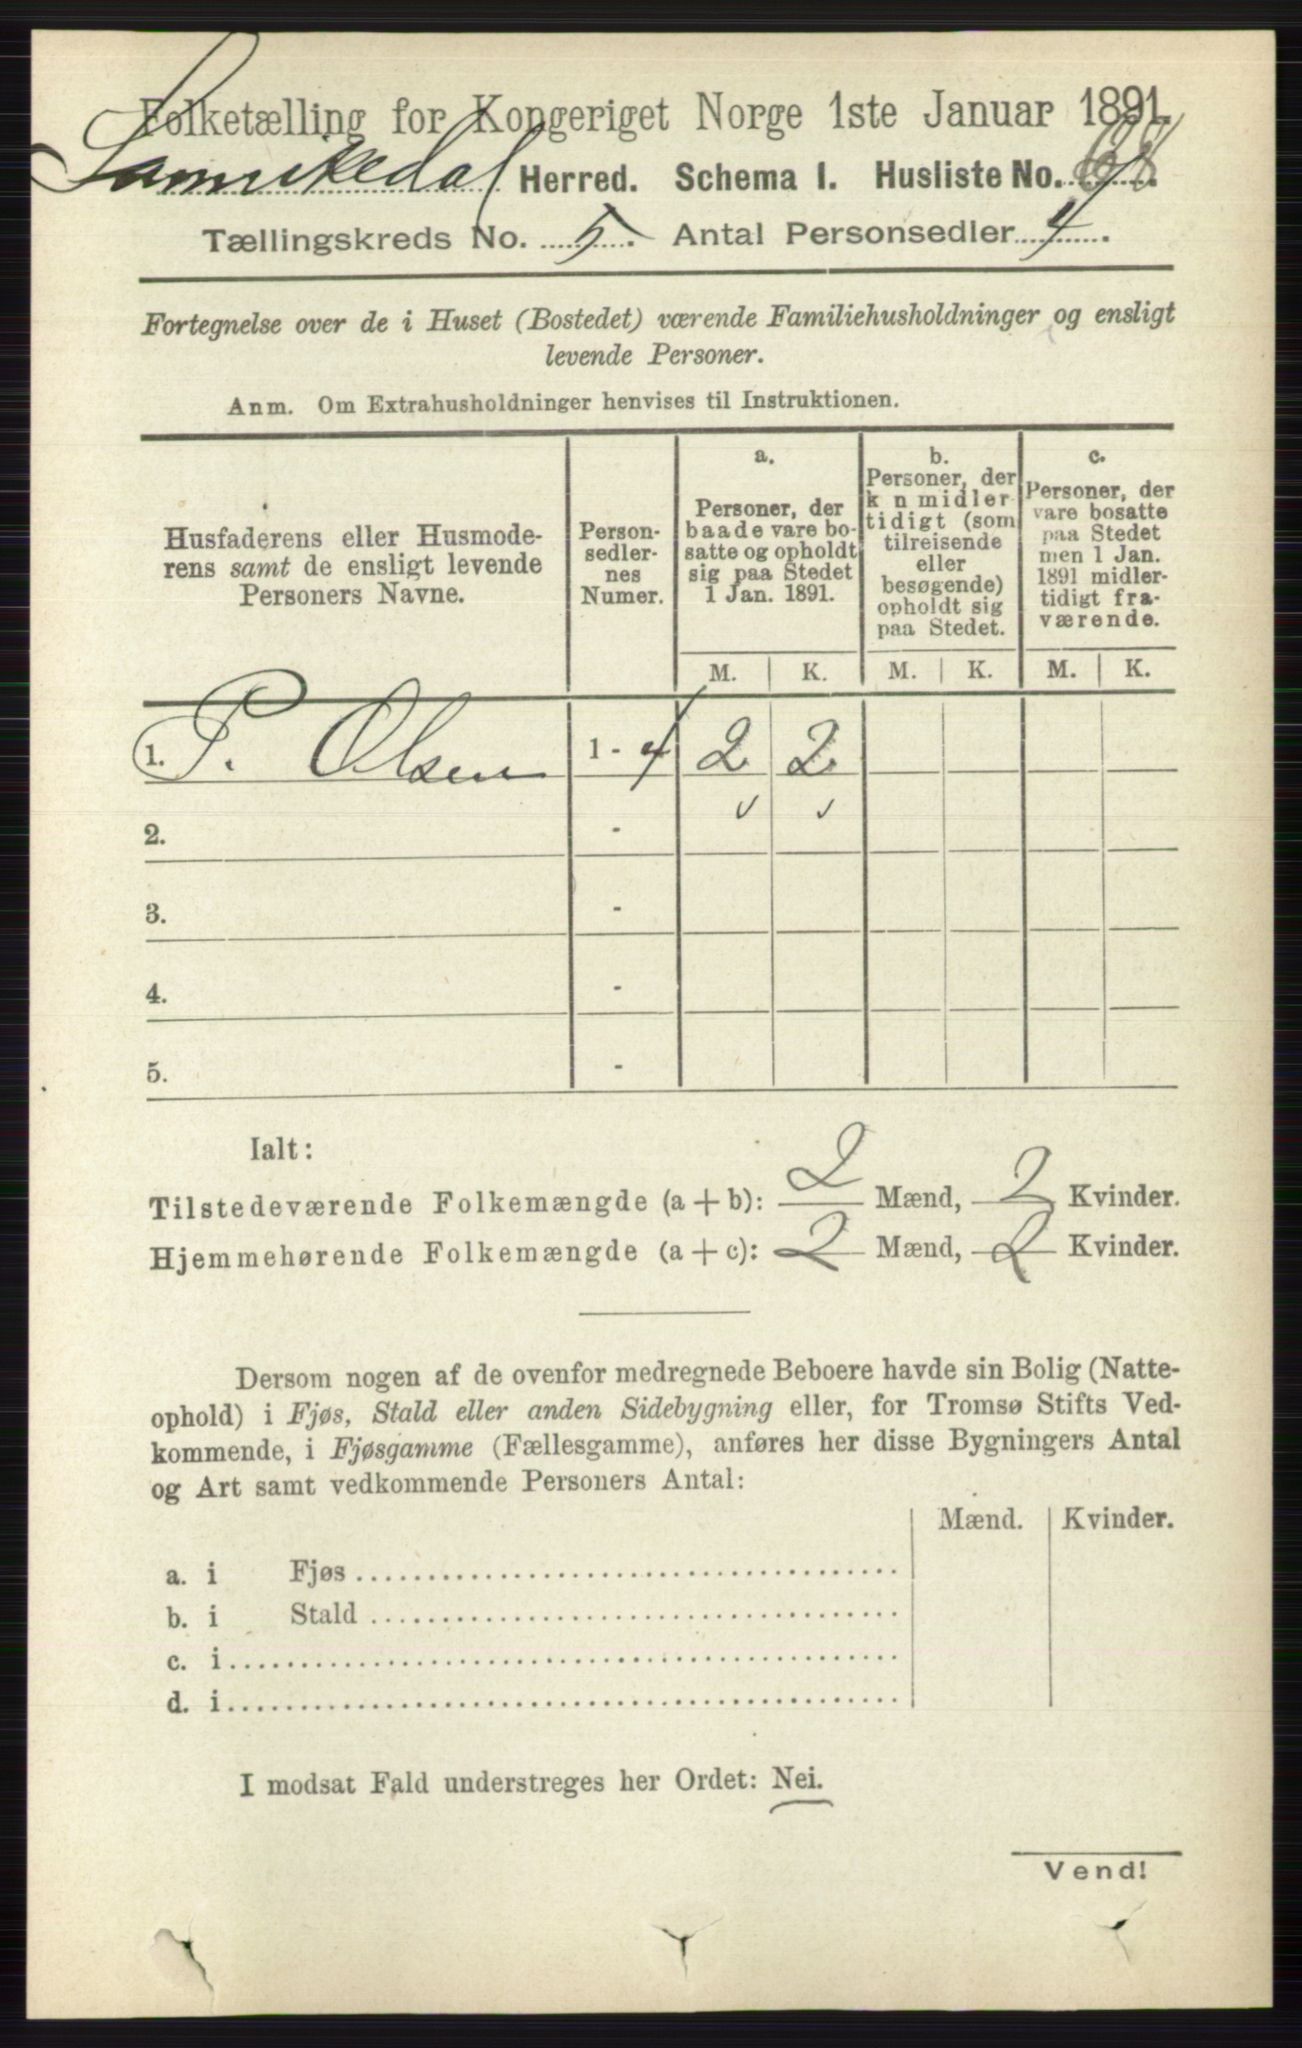 Folketælling for Kongeriget Norge 1ste Januar 1891.
Sannikedal Herred. Schema I. Husliste No.
Tællingskreds No. 5. Antal Personsedler 4.
Fortegnelse over de i Huset (Bostedet) værende Familiehusholdninger og ensligt
levende Personer.
Anm. Om Extrahusholdninger henvises til Instruktionen.
Husfaderens eller Husmode-
rens samt de ensligt levende
Personers Navne.
Person-
sedler-
nes
Numer.
a.
Personer, der
baade vare bo-
satte og opholdt
sig paa Stedet
1 Jan. 1891.
b.
Personer, der
k n midler
tidigt (som
tilreisende
eller
besøgende)
opholdt sig
paa Stedet.
c.
Personer, der
vare bosatte
paa Stedet
men 1 Jan.
1891 midler-
tidigt fra-
værende.
M. K. M. K. M. K.
1. P. Olsen 1 - 4 2 2
2. -
3. -
4. -
5. -
Ialt:
Tilstedeværende Folkemængde (a + b): 2 Mænd, 2 Kvinder.
Hjemmehørende Folkemængde (a + c): 2 Mænd, 2 Kvinder.
Dersom nogen af de ovenfor medregnede Beboere havde sin Bolig (Natte-
ophold) i Fjøs, Stald eller anden Sidebygning eller, for Tromsø Stifts Ved-
kommende, i Fjøsgamme (Fællesgamme), anføres her disse Bygningers Antal
og Art samt vedkommende Personers Antal:
Mænd. Kvinder.
a. i Fjøs
b. i Stald
c. i
d. i
I modsat Fald understreges her Ordet: Nei.
Vend!